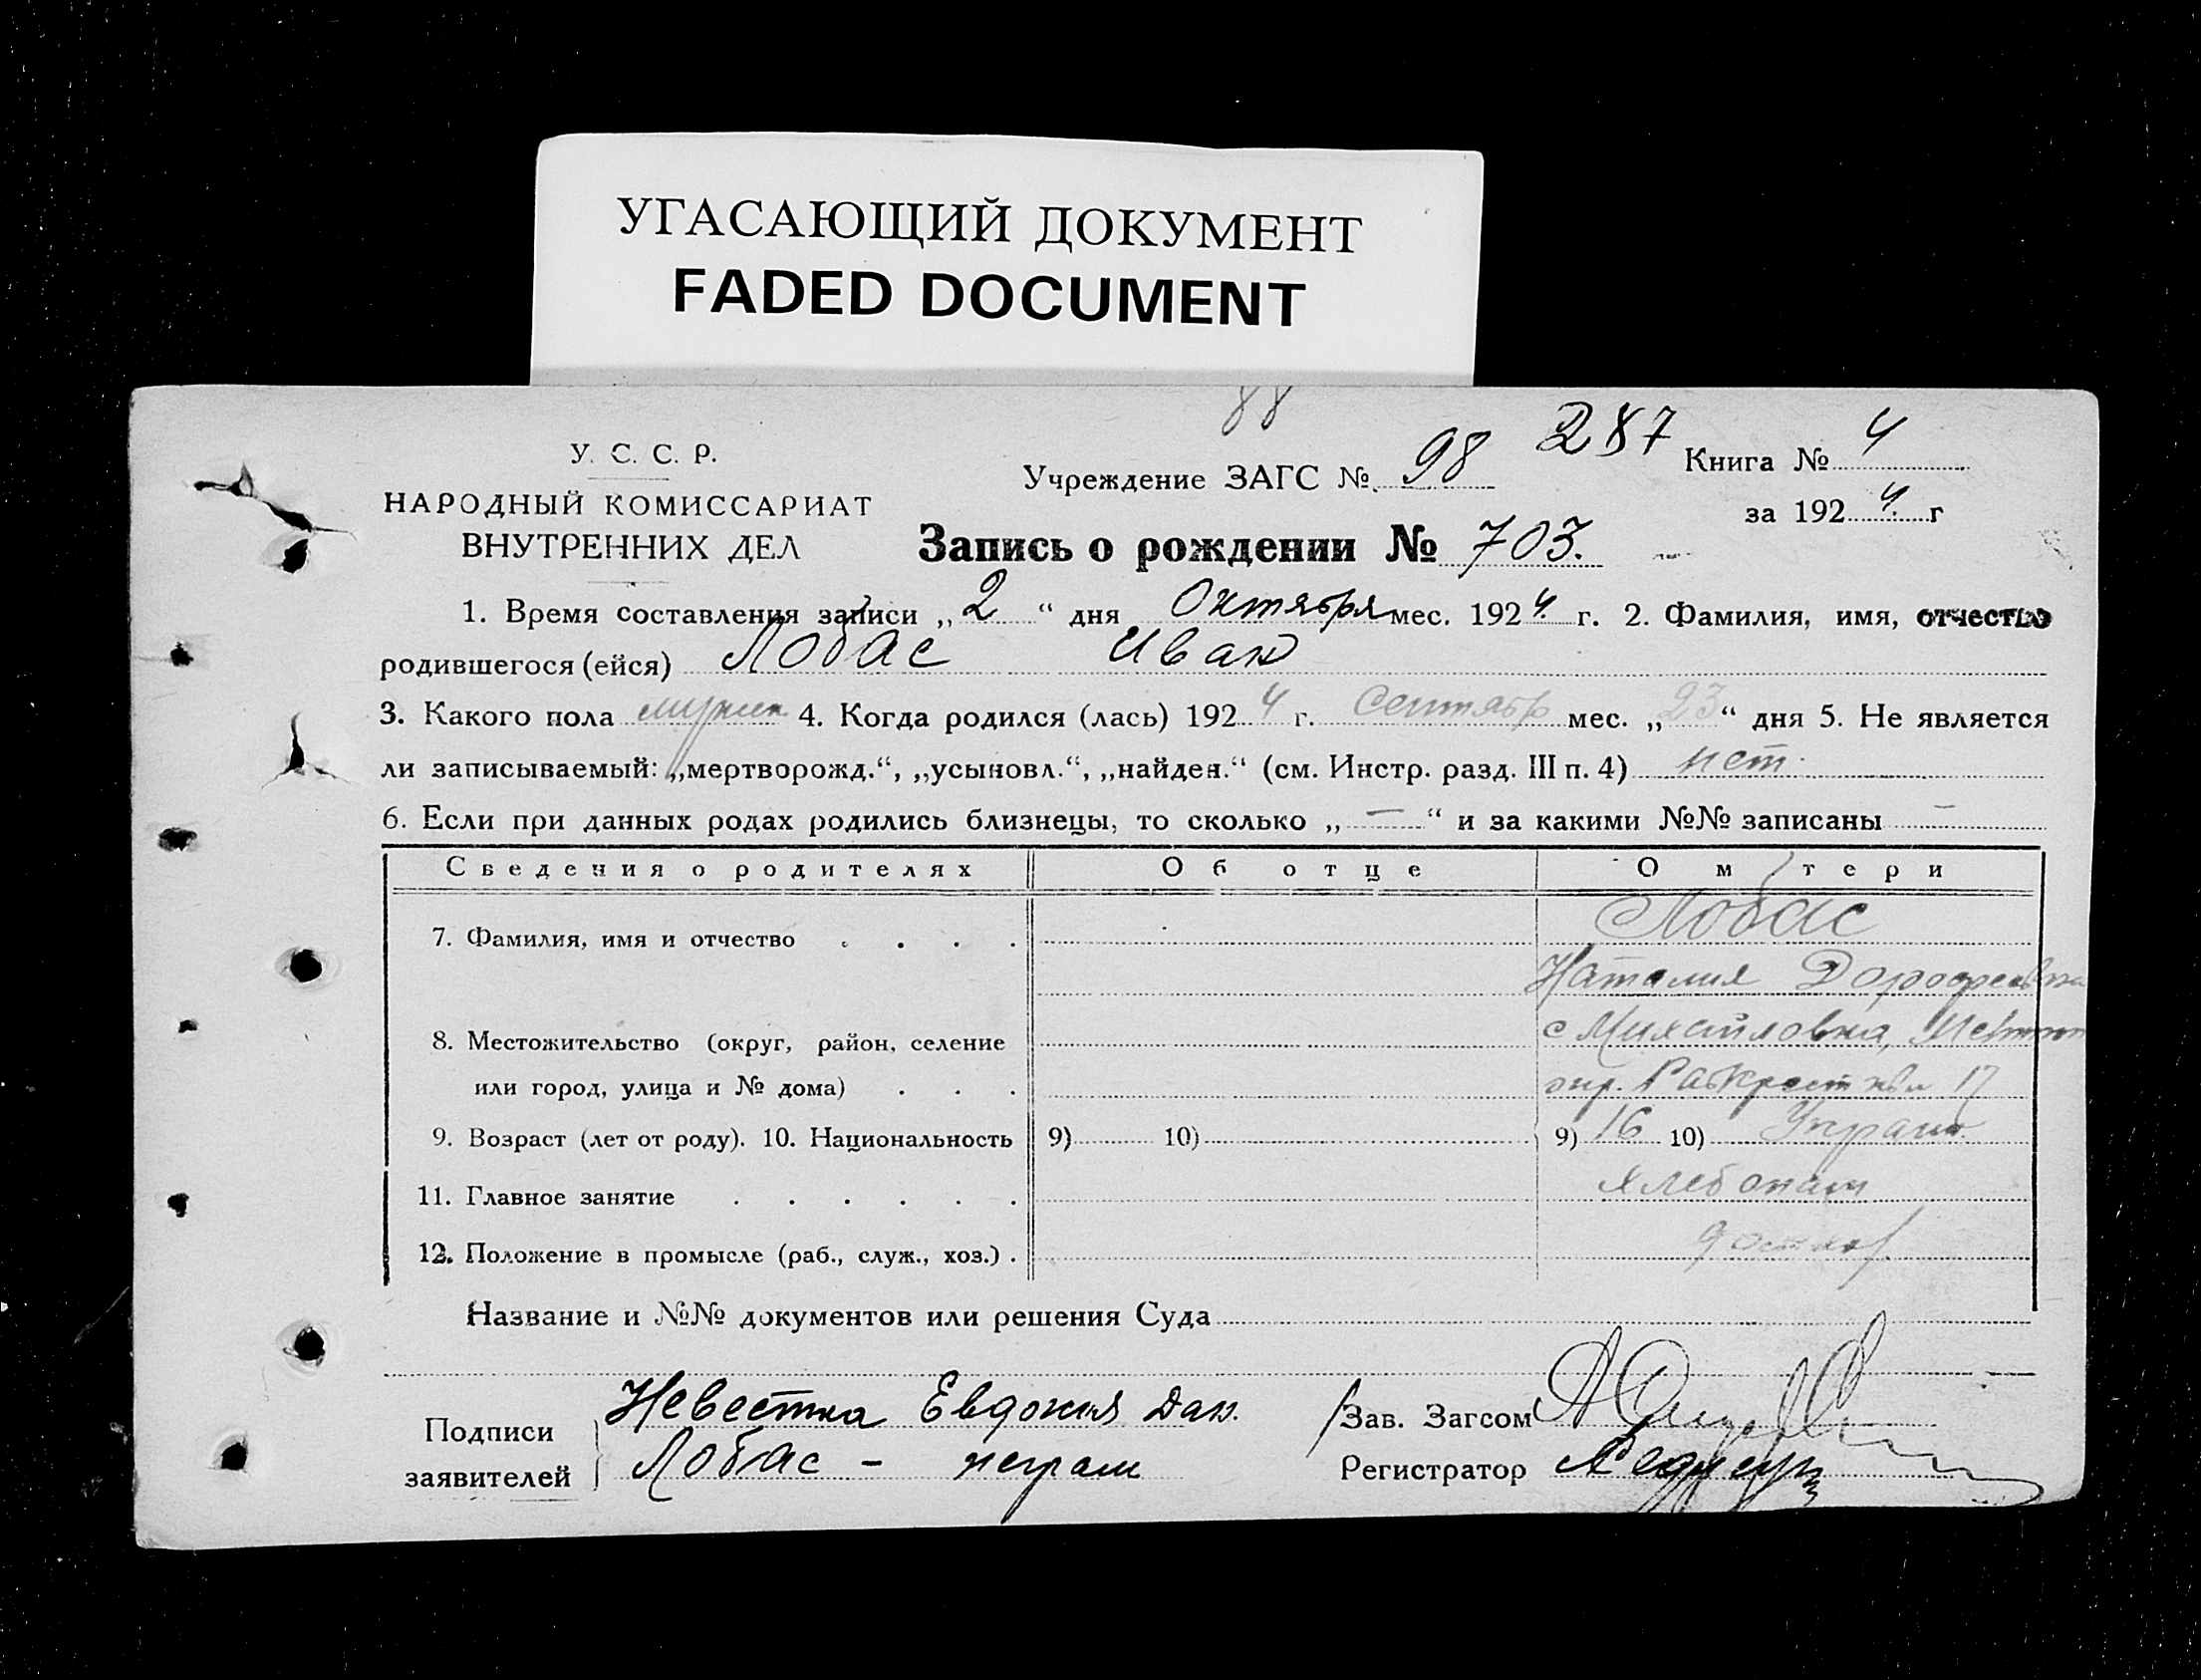 УГАСАЮЩИЙ ДОКУМЕНТ
FADED DOCUMENT
88
287
У. С. С. Р.
НАРОДНЫЙ КОМИССАРИАТ
ВНУТРЕННИХ ДЕЛ
Учреждение ЗАГС № 98
Книга № 4
за 192 4 г
Запись о рождении № 703.
1. Время составления записи „ 2 “ дня Октября мес. 192 4 г. 2. Фамилия, имя, отчество
родившегося (ейся) Лобас Иван
3. Какого пола мужск 4. Когда родился (лась) 192 4 г. Сентябр мес. „ 23 “ дня 5. Не является
ли записываемый: „мертворожд.“, „усыновл.“, „найден.“ (см. Инстр. разд. III п. 4) нет.
6. Если при данных родах родились близнецы, то сколько „ — “ и за какими №№ записаны —
Сведения о родителях Об отце О матери
7. Фамилия, имя и отчество . . . . Лобас
Наталия Дорофеевна
8. Местожительство (округ, район, селение с Михайловка,
или город, улица и № дома) . . . окр. 17
9. Возраст (лет от роду). 10. Национальность 9) 10) 9) 16 10) Украин.
11. Главное занятие . . . . . . хлебопаш
12. Положение в промысле (раб., служ., хоз.) .
Название и №№ документов или решения Суда
Подписи заявителей Невестка Евдокия Дан.
Лобас - неграм
Зав. Загсом
Регистратор